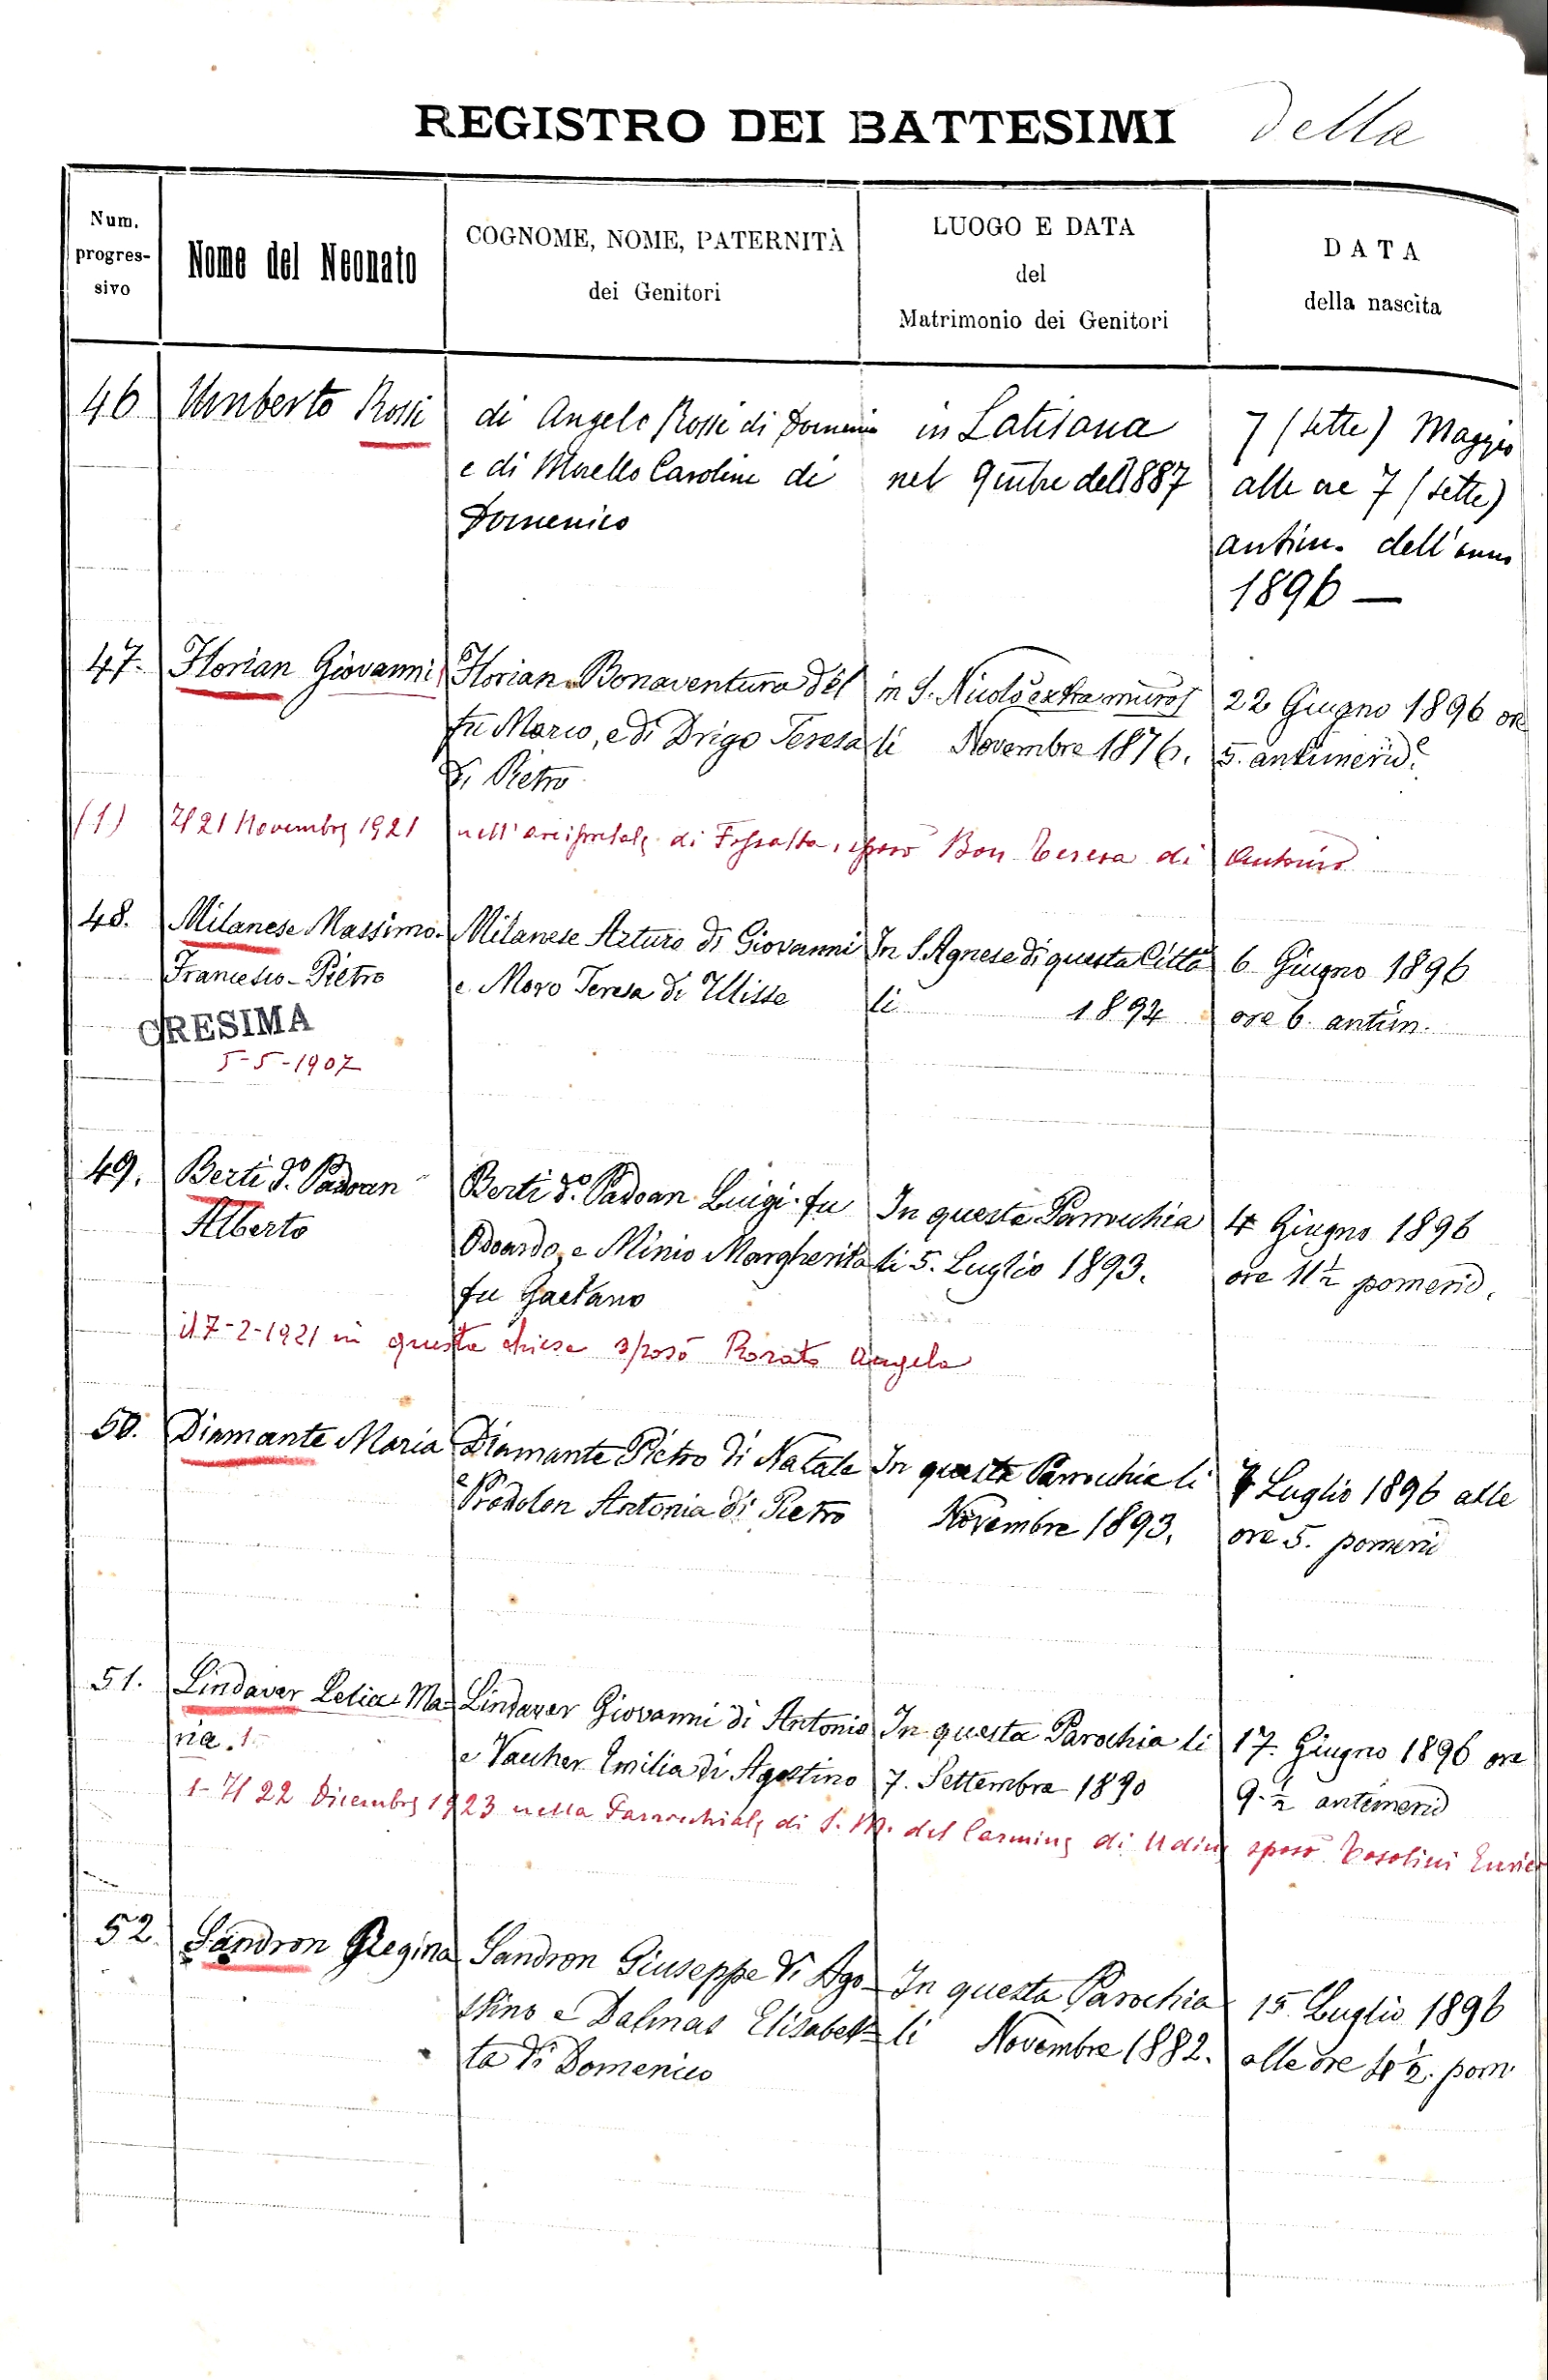 REGISTRO DEI BATTESIMI della
Num.
progres-
sivo
Nome del Neonato
COGNOME, NOME, PATERNITÀ
dei Genitori
LUOGO E DATA
del
Matrimonio dei Genitori
DATA
della nascita
46
Umberto Rossi
di Angelo Rossi di Domenico
e di Morello Carolina di
Domenico
in Latisana
nel 9mbre del 1887
7 (sette) Maggio
alle ore 7 (sette)
antim. dell'anno
1896 —
47.
Florian Giovanni
Florian Bonaventura del
fu Marco, e di Drigo Teresa
di Pietro
in S. Nicolò extra muros
li Novembre 1876.
22 Giugno 1896 ore
5. antimerid.e
(1) Il 21 Novembre 1921 nell'arcipretale di Fossalta, sposò Bon Teresa di Antonio
48.
Milanese Massimo-
Francesco-Pietro
CRESIMA
5-5-1907
Milanese Arturo di Giovanni
e Moro Teresa di Ulisse
In S. Agnese di questa Città
li 1894
6 Giugno 1896
ore 6. antim.
49.
Berti d.o Padoan
Alberto
Berti d.o Padoan Luigi fu
Odoardo, e Minio Margherita
fu Gaetano
In questa Parrochia
li 5. Luglio 1893.
4 Giugno 1896
ore 11 1/2 pomerid.
il 7-2-1921 in questa chiesa sposò Rorato Angela
50.
Diamante Maria
Diamante Pietro di Natale
e Prodolon Antonia di Pietro
In questa Parrochia li
Novembre 1893.
7 Luglio 1896 alle
ore 5. pomerid
51.
Lindaver Lelia-Ma=
ria. 1-
Lindaver Giovanni di Antonio
e Vaucher Emilia di Agostino
In questa Parochia li
7. Settembre 1890
17. Giugno 1896 ore
9. 1/2 antimerid
1- Il 22 Dicembre 1923 nella Parrocchiale di S. M. del Carmine di Udine sposò Tosolini Enrico
52.
Sandron Regina
Sandron Giuseppe di Ago-
stino e Dalmas Elisabet=
ta di Domenico
In questa Parochia
li Novembre 1882.
15 Luglio 1896
alle ore 4 1/2. pom.